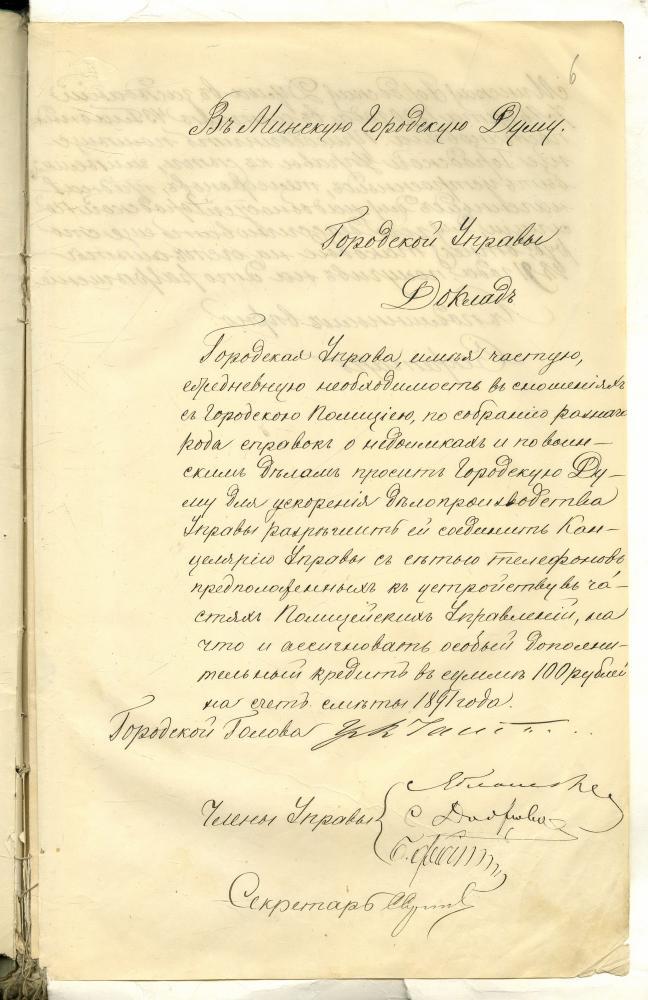 6
Въ Минскую Городскую Думу.
Городской Управы
Докладъ
Городская Управа, имѣя частую,
ежедневную необходимость въ сношеніяхъ
съ Городскою Полиціею, по собранію разнаго
рода справокъ о недоимкахъ и по воин-
скимъ дѣламъ проситъ Городскую Ду-
му для ускоренія дѣлопроизводства
Управы разрѣшить ей соединить Кан-
целярію Управы съ сѣтью телефоновъ
предположенныхъ къ устройству въ ча-
стяхъ Полицейскихъ Управленій, на
что и ассигновать особый дополни-
тельный кредитъ въ суммѣ 100 рублей
на счетъ смѣты 1891 года.
Городской Голова
Члены Управы
Секретарь